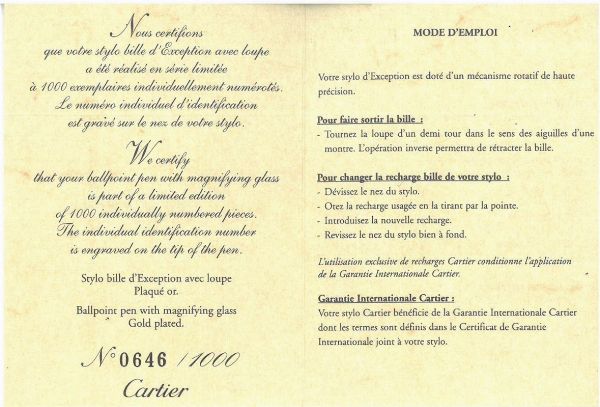 Nous certifions
que votre stylo bille d'Exception avec loupe
a été réalisé en série limitée
à 1000 exemplaires individuellement numérotés.
Le numéro individuel d'identification
est gravé sur le nez de votre stylo.
We certify
that your ballpoint pen with magnifying glass
is part of a limited edition
of 1000 individually numbered pieces.
The individual identification number
is engraved on the tip of the pen.
Stylo bille d'Exception avec loupe
Plaqué or.
Ballpoint pen with magnifying glass
Gold plated.
N° 0646 / 1000
Cartier
MODE D'EMPLOI
Votre stylo d'Exception est doté d'un mécanisme rotatif de haute
précision.
Pour faire sortir la bille :
- Tournez la loupe d'un demi tour dans le sens des aiguilles d'une
montre. L'opération inverse permettra de rétracter la bille.
Pour changer la recharge bille de votre stylo :
- Dévissez le nez du stylo.
- Otez la recharge usagée en la tirant par la pointe.
- Introduisez la nouvelle recharge.
- Revissez le nez du stylo bien à fond.
L'utilisation exclusive de recharges Cartier conditionne l'application
de la Garantie Internationale Cartier.
Garantie Internationale Cartier :
Votre stylo Cartier bénéficie de la Garantie Internationale Cartier
dont les termes sont définis dans le Certificat de Garantie
Internationale joint à votre stylo.